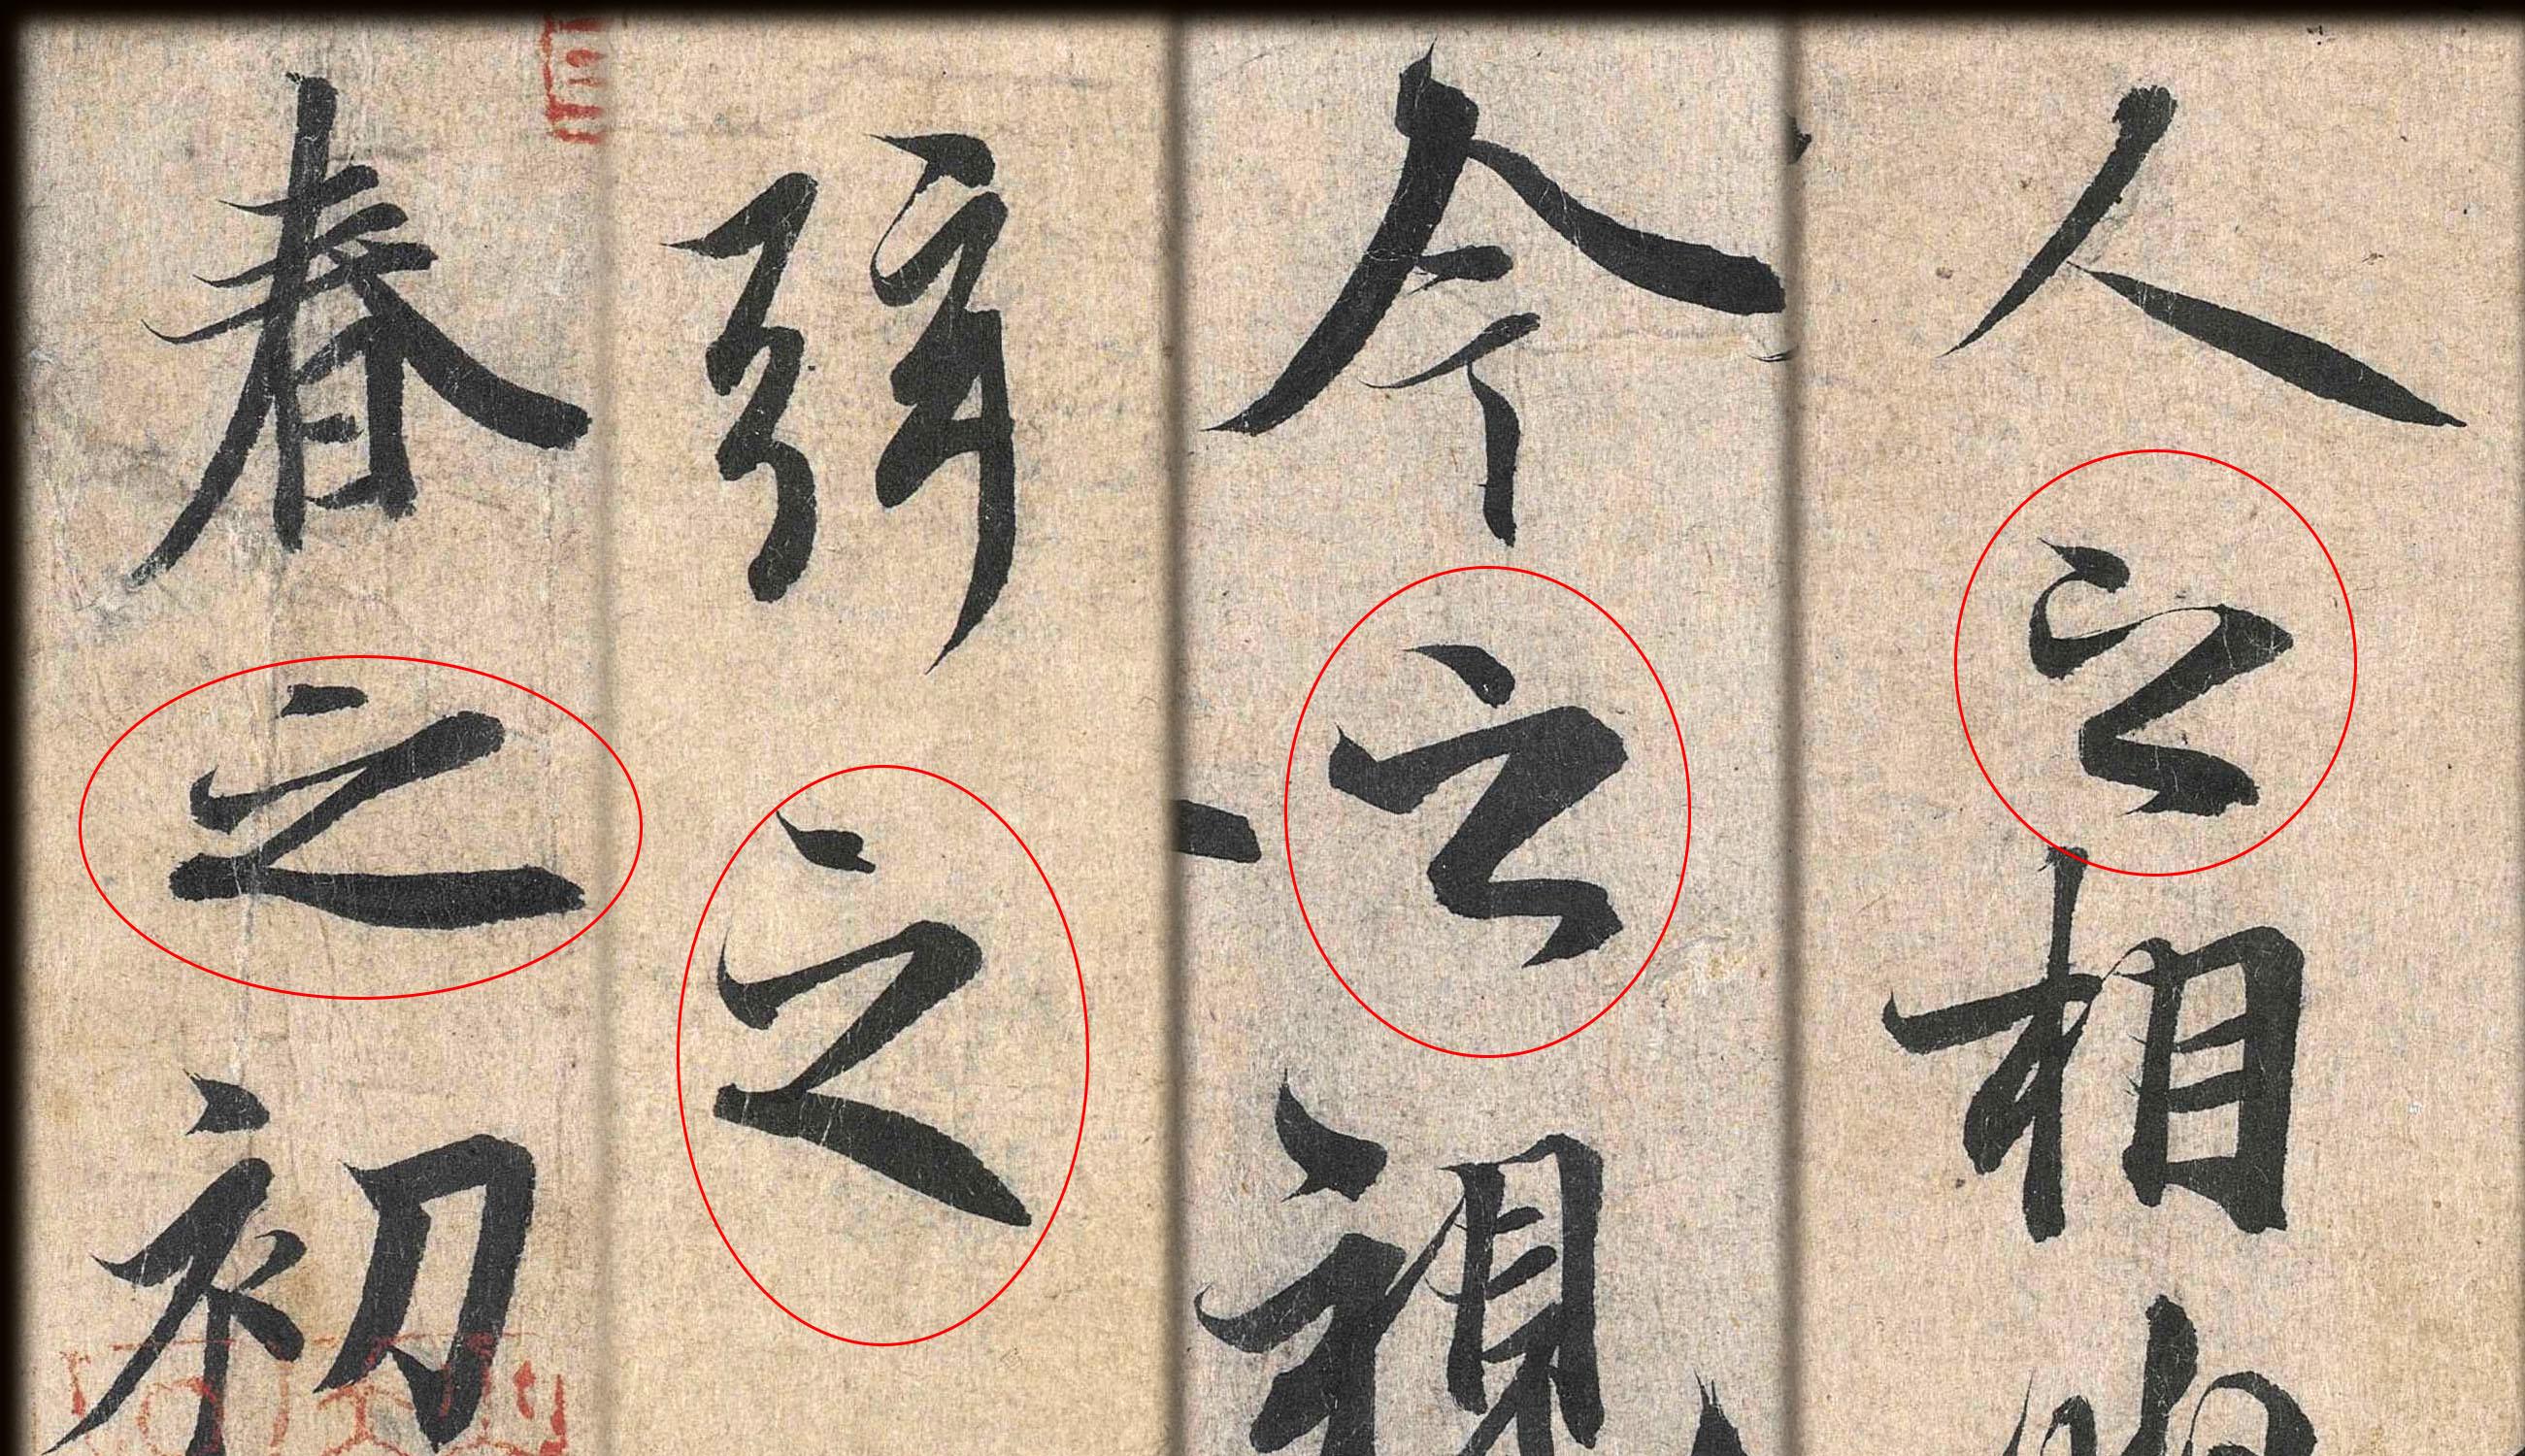 人之相
今之視
弦之
春之初